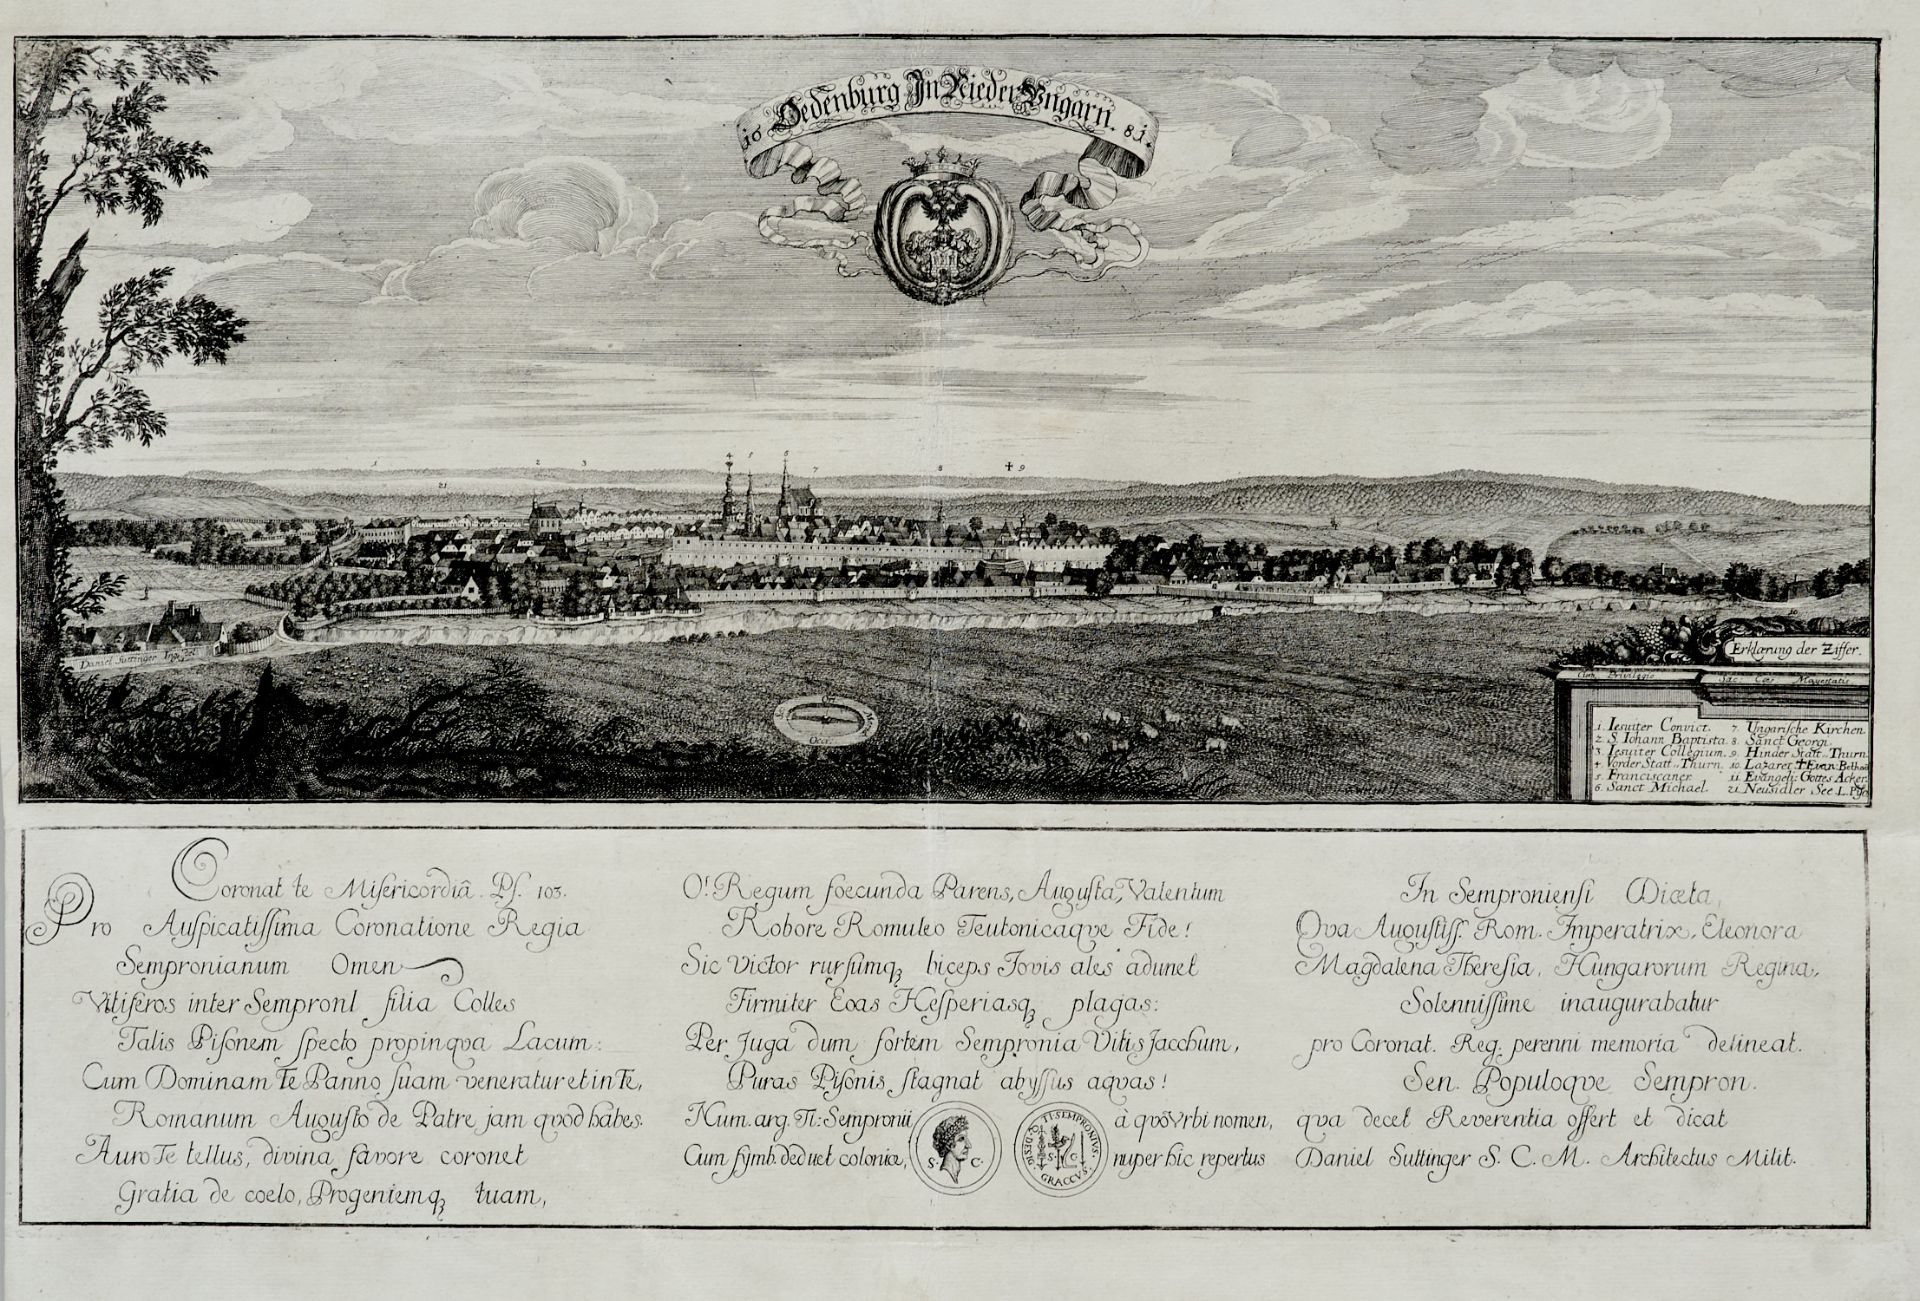 16 Oedenburg Jn Nieder Vngarn. 81.
1 2 3 4 5 6 7 8 ✝9
21
10
Daniel Suttinger
Erklærung der Ziffer.
Cum Privilegio Sac. Cæs. Mayestatis
1. Iesuiter Convict.
2. S. Iohann Baptista
3. Iesuiter Collegium.
4. Vorder Statt=Thurn.
5. Franciscaner
6. Sanct Michael.
7. Ungarische Kirchen
8. Sanct Georgi.
9. Hinder Statt=Thurn
10. Lazaret ✝Evan: Bethau
11. Evangeli: Gottes Acker.
21. Neusidler See L. Piso
Occ.
Coronat te Miſericordiâ. Pſ. 103.
Pro Auſpicatiſſima Coronatione Regia
Sempronianum Omen
Vitiferos inter SempronI filia Colles
Talis Piſonem ſpecto propinqva Lacum:
Cum Dominam Te Panno ſuam veneratur et in Te,
Romanum Auguſto de Patre jam qvod habes.
Auro Te tellus, divina favore coronet
Gratia de coelo, Progeniemq; tuam,
O! Regum foecunda Parens, Auguſta, Valentum
Robore Romuleo Teutonicaqve Fide!
Sic Victor rurſumq; biceps Jovis ales adunet
Firmiter Eoas Heſperiasq; plagas:
Per Juga dum fortem Sempronia Vitis Jacchum,
Puras Piſonis ſtagnat abyſſus aqvas!
Num. arg. Ti: Sempronii â qvô Vrbi nomen,
Cum ſymb. deduct coloniæ, nuper hic repertus
S. C.
TI. SEMPRONIVS. GRACCVS. Q. DESIG.
S. C.
In Sempronienſi Diæta,
Qva Auguſtiſſ. Rom. Imperatrix, Eleonora
Magdalena Thereſia, Hungarorum Regina,
Solenniſſime inaugurabatur
pro Coronat. Reg. perenni memoria delineat.
Sen. Populoqve Sempron.
qva decet Reverentia offert et dicat
Daniel Suttinger S. C. M. Architectus Milit.